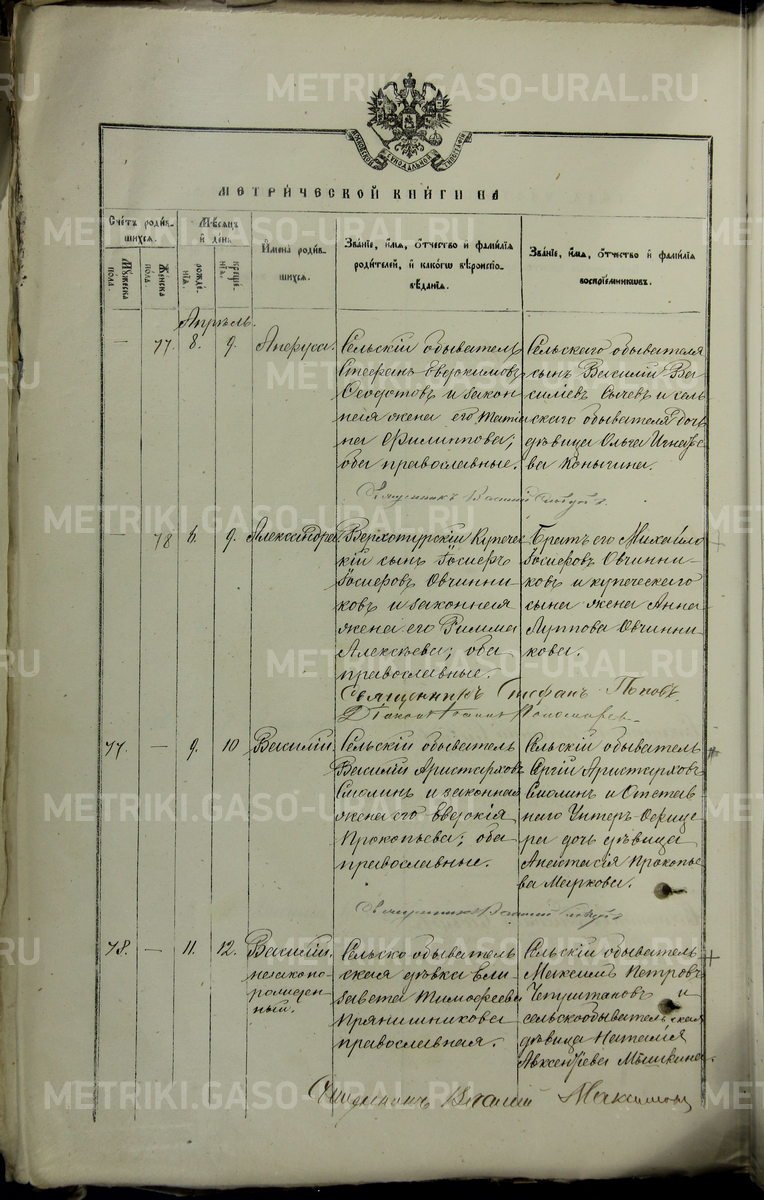 METRIKI.GASO-URAL.RU
МЕТРИ́ЧЕСКОЙ КНИ́ГИ НА
Сче́тъ роди́в-
шихся.
Мѣсяцъ
и́ день
И́мена роди́в-
шихся.
Зва́нїе, и́мя, о́тчество и́ фами́лїя
роди́телей, и́ како́гѡ вѣроиспо-
вѣ́данїя.
Зва́нїе, и́мя, о́тчество и́ фами́лїя
воспрїе́мниковъ.
Му́жеска
пола.
Же́нска
пола.
рожде́-
нїя.
креще́-
нїя.
Апрѣль.
— 77. 8. 9. Анфуса.
Сельскій обыватель
Стефанъ Евдокимовъ
Ѳеодотовъ и закон-
ная жена его Татiа-
на Филиппова;
оба православные.
Сельскаго обывателя
сынъ Василій Ва-
силіевъ Сычевъ и сель-
скаго обывателя дочь
дѣвица Ольга Игнатіе-
ва Коныгина.
Священникъ Василій
— 78 6. 9. Александра.
Верхотурскій Купече-
скій сынъ Іосифъ
Іосифовъ Овчинни-
ковъ и законная
жена его Римма
Алексѣева; оба
православные.
Братъ его Михаилъ
Іосифовъ Овчинни-
ковъ и купеческаго
сына жена Анна
Луппова Овчинни-
кова.
Священникъ Стефанъ Поповъ.
77. — 9. 10 Василій.
Сельскій обыватель
Василій Аристарховъ
Смолинъ и законная
жена его Евдокія
Прокопьева; оба
православные.
Сельскій обыватель
Сергій Аристарховъ
Смолинъ и Отстав-
наго Унтеръ-Офице-
ра дочь дѣвица
Анастасія Прокопье-
ва Маркова.
Священникъ Василій
78. — 11. 12. Василій.
незаконо-
рожден-
ный.
Сельско-обыватель-
ская дѣвка Ели-
завета Тимофеева
Прянишникова
православная.
Сельскій обыватель
Максимъ Петровъ
и
сельскообывательская
дѣвица Наталія
Авксентіева Мышкина.
Священникъ Василій